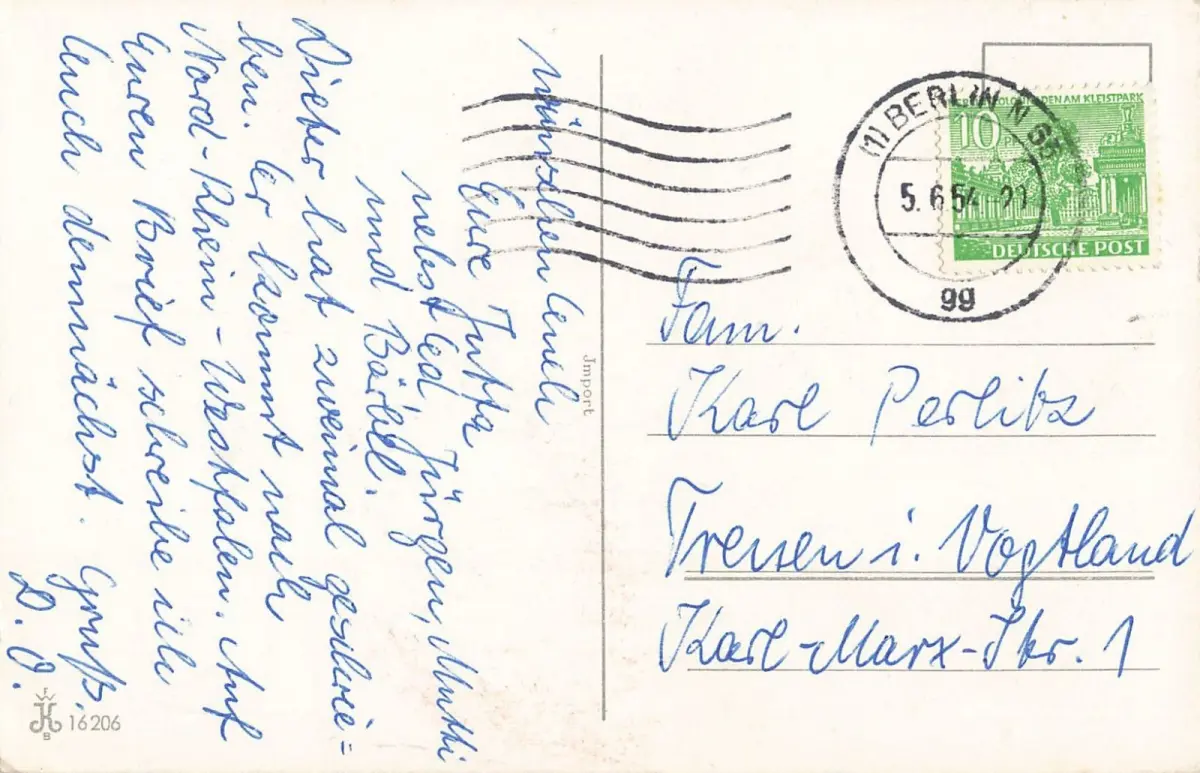 wünschen Euch
Eure Jutta
nebst Jürgen, Mutti
und Bärbel.
Dieter hat zweimal geschrie=
ben. Er kommt nach
Nord-Rhein-Westfalen. Auf
Euren Brief schreibe ich
Euch demnächst. Gruß.
D. O.
Import
16206
(1) BERLIN N
5.6.54
gg
AM KLEISTPARK
10
DEUTSCHE POST
Fam.
Karl Perlitz
Treuen i. Vogtland
Karl-Marx-Str. 1